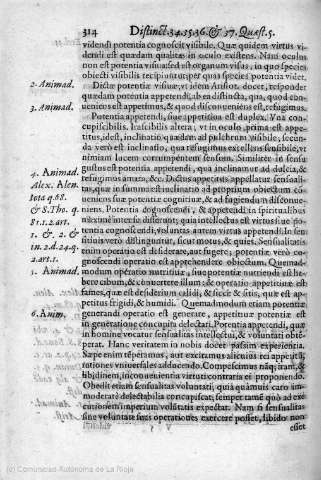 314 Distinct. 34. 35. 36. & 37. Quæst. 5.
videndi potentia cognoscit visibile. Quæ quidem virtus vi-
dendi est quædam qualitas in oculo existens. Nam oculus
non est potentia visiua sed est organum visus, in quo species
obiecti visibilis recipiuntur per quas species potentia videt.
2. Animad.
Dictæ potentiæ visiuæ, vt idem Aristot. docet, respondet
quædam potentia appetendi, ab ea distincta, qua, quod con-
3. Animad.
ueniens est appetimus, & quod disconueniens est, refugimus.
Potentia appetendi, siue appetitus est duplex. Vna con-
cupiscibilis. Irascibilis altera, vt in oculo, prima est appe-
titus, idest, inclinatio quædam ad pulchrum visibile, secun-
da verò est inclinatio, qua refugimus excellens sensibile, vt
nimiam lucem corrumpentem sensum. Similiter in sensu
gustus est potentia appetendi, qua inclinamur ad dulcia, &
4. Animad.
refugimus amara, &c. Dictus appetitus appellatur sensuali-
Alex. Alen.
tas, quæ in summa est inclinatio ad proprium obiectum con-
tota q. 68
ueniens suæ potentiæ cognitiuæ, & ad fugiendum disconue-
& S. Tho. q.
niens. Potentia cognoscendi, & appetendi in spiritualibus
81. 1. 2. art.
maximè interdistat, nam intellectus est virtus siue po-
1. & 2. &
tentia cognoscendi, voluntas autem virtus appetendi. In sen-
in. 2. d. 24. q.
sitiuis verò distinguitur, sicut motus, & quies. Sensualitatis
2. art. 1.
enim operatio est desiderare, aut fugere; potentiæ verò co-
5. Animad.
gnoscendi operatio est apprehendere obiectum. Quemad-
modum operatio nutritiuæ, siue potentiæ nutriendi est habe-
here cibum, & conuertere illum; & operatio appetitiuæ est
fames, quæ est desiderium calidi, & sicci & sitis, quæ est ap-
petitus frigidi, & humidi. Quemadmodum etiam potentiæ
6. Anim.
generandi operatio est generare, appetituæ potentiæ est
in generatione concupis delectari. Potentia appetendi, quæ
in homine vocatur sensualitas intellectui, & voluntati obte-
perat. Hanc veritatem in nobis docet passim experientia.
Sæpe enim temperamus, aut excitamus alicuius rei appetitū,
rationes vniuersales adducendo. Compescimus namq; iram, &
libidinem, inconuenientia virtuti contraria ei proponendo.
Obedit etiam sensualitas voluntati, quia quamuis caro im-
moderatè delectabilia concupiscat, semper tamē quò ad exe-
cutionem imperium volūtatis expectat. Nam si sensualitas
sine voluntate suas operationes exercere posset, libido non
esset
(c) Comunidad Autónoma de La Rioja